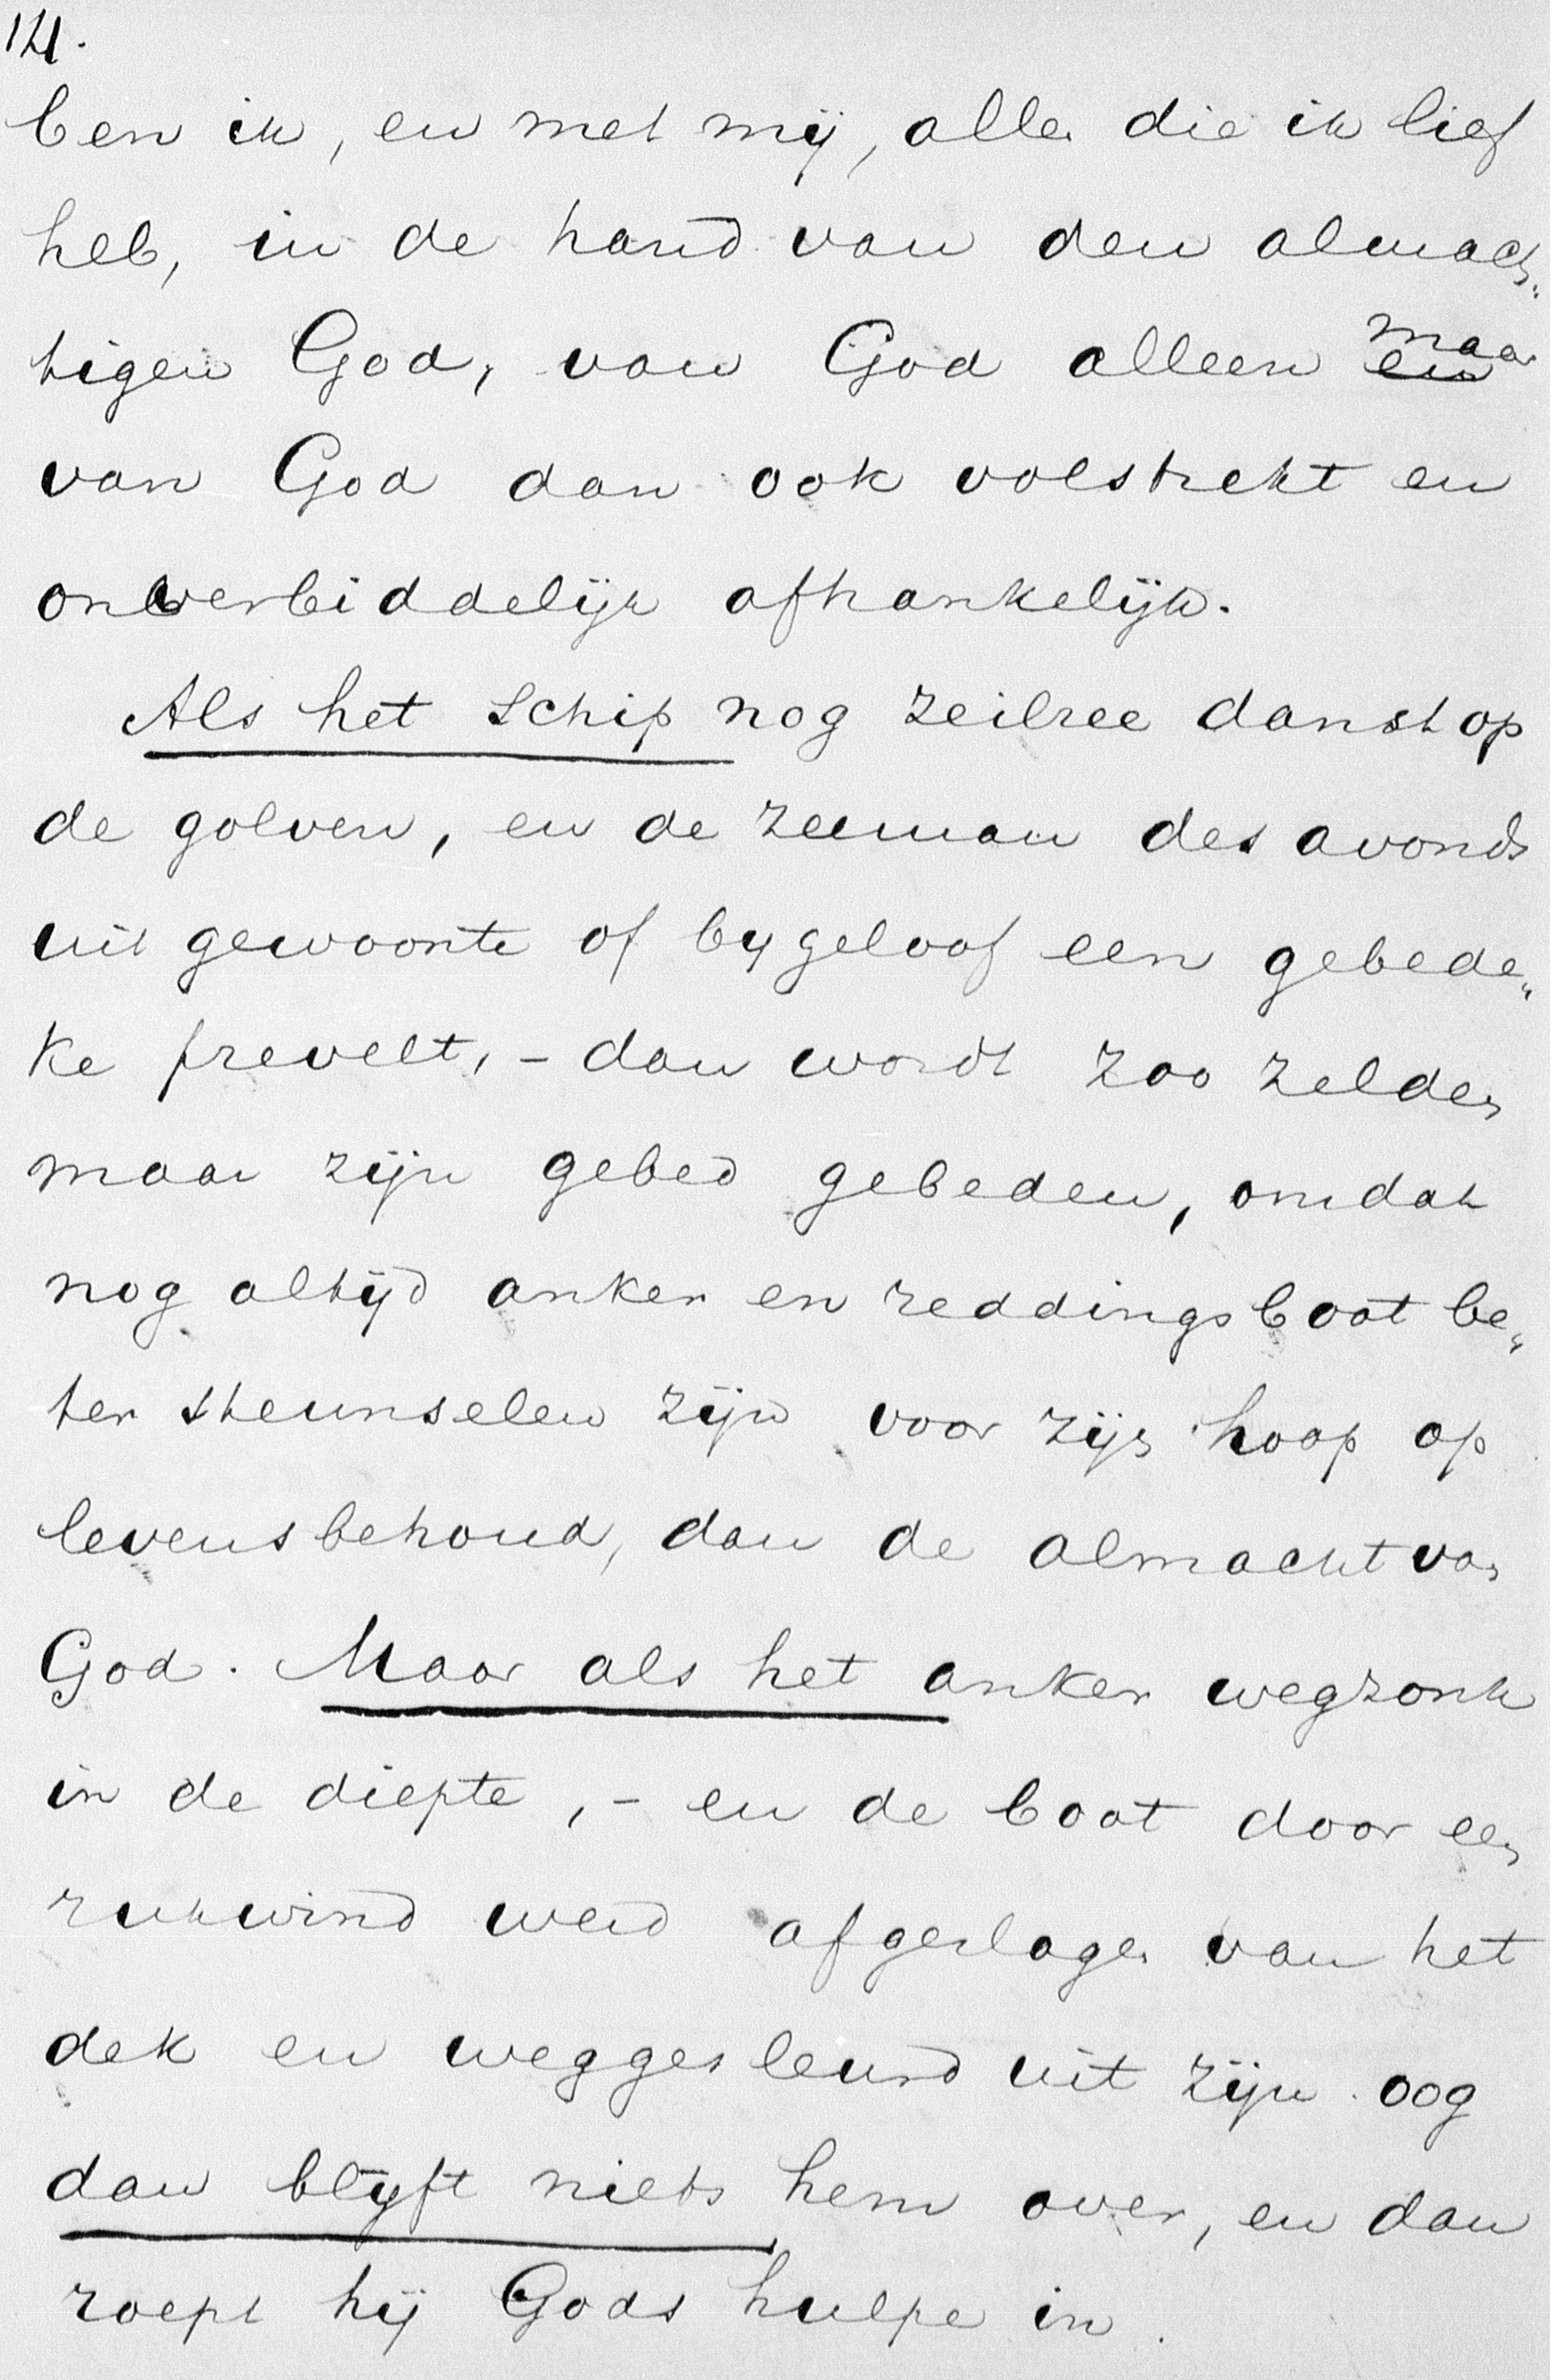 121.
ben ik, en met mij, alle die ik lief
heb, in de hand van den almach„
tigen God, van God alleen maar
van God dan ook volstrekt en
onverbiddelijk afhankelijk.
Als het schip nog zeilree danst op
de golven, en de zeeman des avonds
uit gewoonte of bygeloof een gebede„
ke prevelt, – dan wordt zoo zelden
maar zijn gebed gebeden, omdat
nog altijd anker en reddingsboot be„
ter steunselen zijn voor zijn hoop op
levensbehoud, dan de almacht van
God. Maar als het anker wegzonk
in de diepte, – en de boot door een
rukwind werd afgeslagen van het
dek en weggesleurd uit zijn oog
dan blyft niets hem over, en dan
roept hij Gods hulpe in.